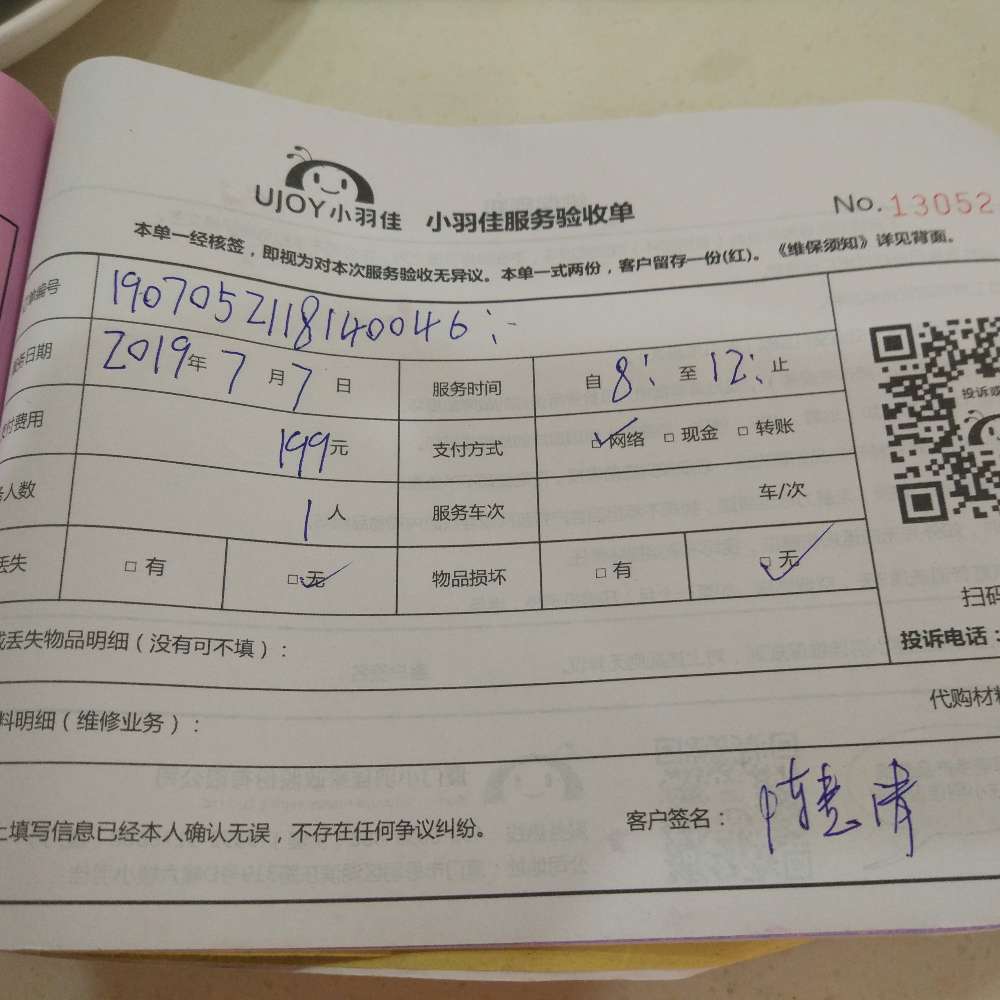 UJOY小羽佳 小羽佳服务验收单 No.13052
本单一经核签，即视为对本次服务验收无异议。本单一式两份，客户留存一份(红)。《维保须知》详见背面。
单编号 1907052118140046
务日期 2019年7月7日 服务时间 自8: 至12: 止
付费用 199元 支付方式 ☑网络 □现金 □转账
人数 1人 服务车次 车/次
丢失 □有 ☑无 物品损坏 □有 ☑无
投诉
扫码
投诉电话：
丢失物品明细（没有可不填）：
料明细（维修业务）： 代购材料
上填写信息已经本人确认无误，不存在任何争议纠纷。 客户签名：